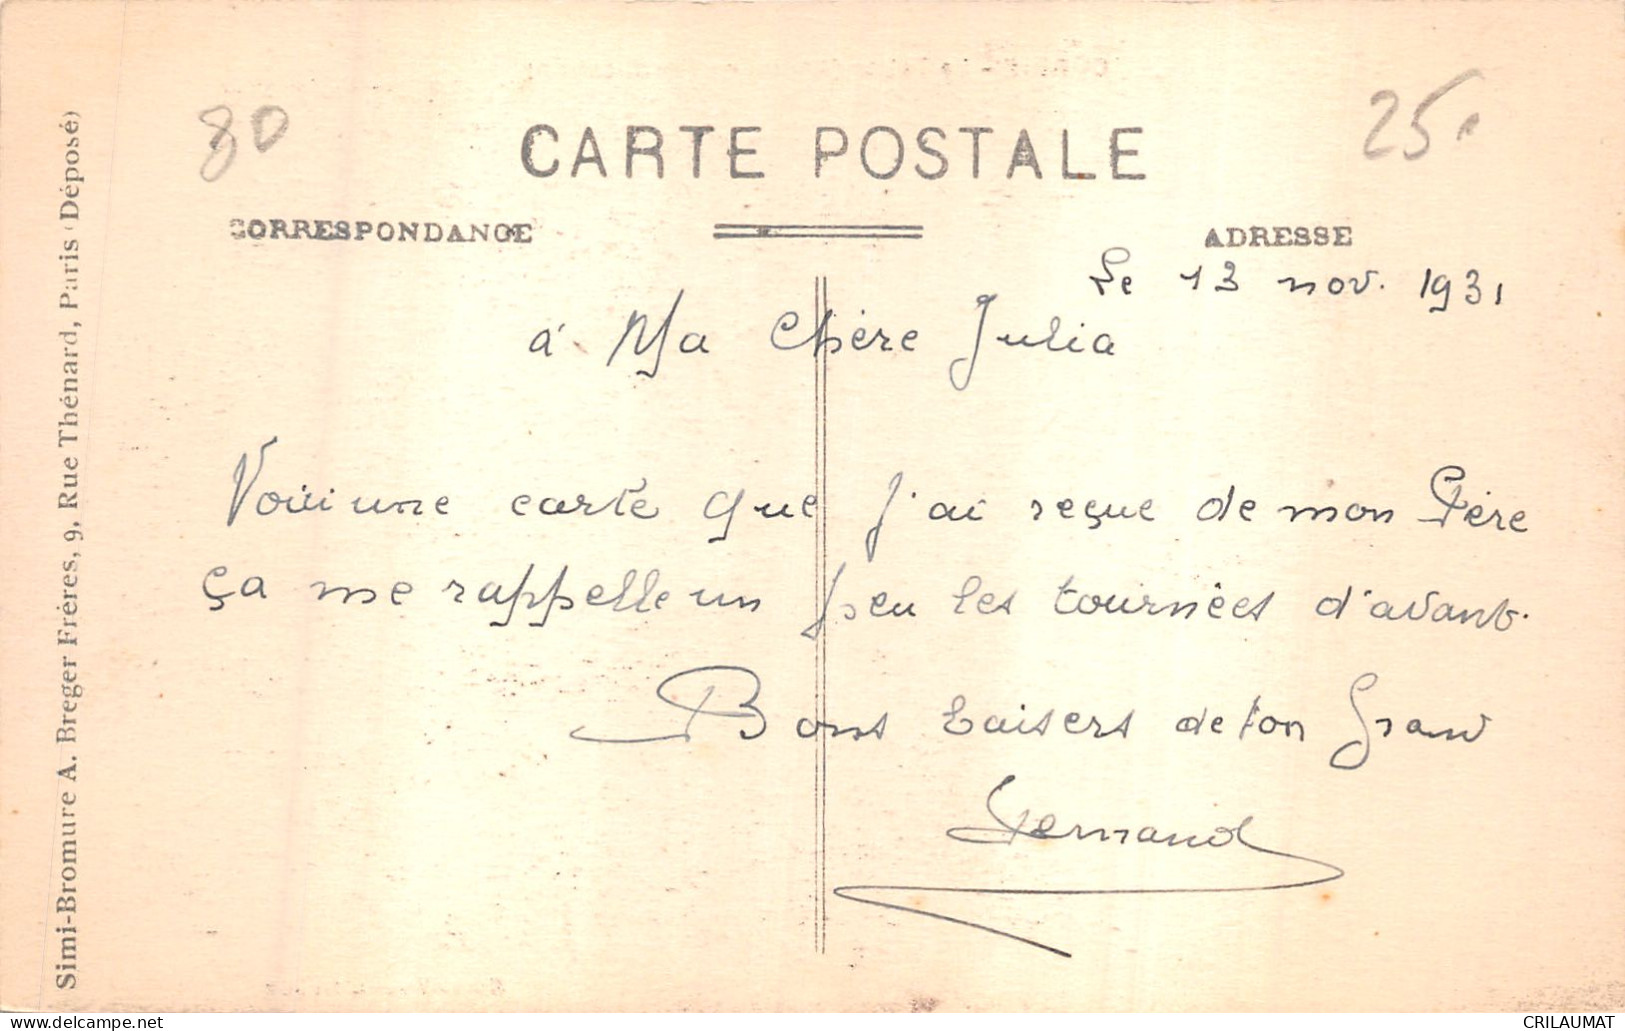 80
25
CARTE POSTALE
CORRESPONDANCE
ADRESSE
Le 13 nov. 1931
à Ma Chère Julia
Voici une carte que j'ai reçue de mon Père
ça me rappelle un peu les tournées d'avant.
Bons baisers de ton Grand
Fernand
Simi-Bromure A. Breger Frères, 9, Rue Thénard, Paris (Déposé)
delcampe.net
CRILAUMAT